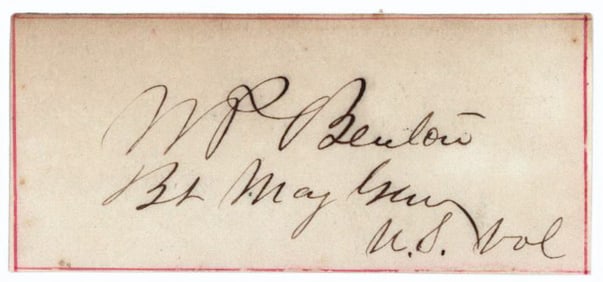 W P Benton
Bt Maj Genl
U.S. Vol